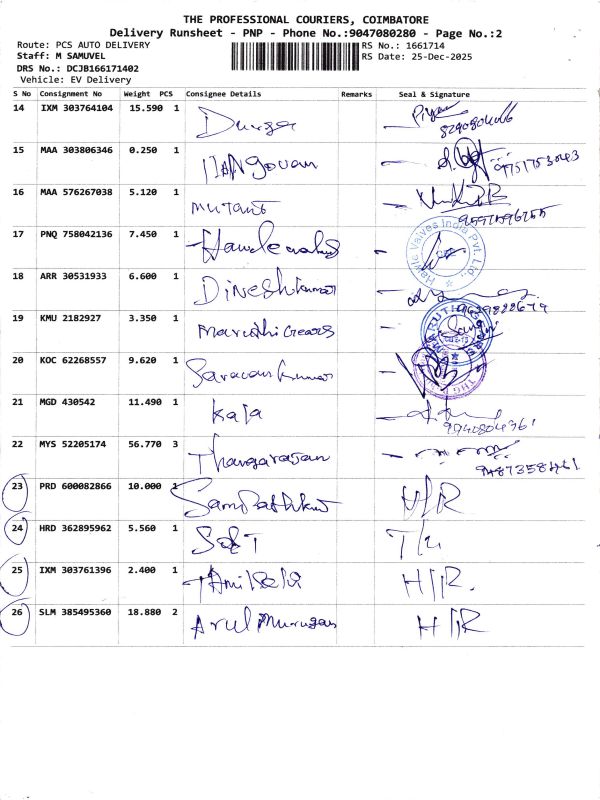 THE PROFESSIONAL COURIERS, COIMBATORE
Delivery Runsheet - PNP - Phone No.:9047080280 - Page No.:2
Route: PCS AUTO DELIVERY RS No.: 1661714
Staff: M SAMUVEL RS Date: 25-Dec-2025
DRS No.: DCJB166171402
Vehicle: EV Delivery
S No Consignment No Weight PCS Consignee Details Remarks Seal & Signature
14 IXM 303764104 15.590 1 Durga
15 MAA 303806346 0.250 1 9751753043
16 MAA 576267038 5.120 1
17 PNQ 758042136 7.450 1 Hawle Valves India Pvt. Ltd.,
18 ARR 30531933 6.600 1 Dineshkumar 9629822679
19 KMU 2182927 3.350 1 Maruthi Gears
20 KOC 62268557 9.620 1 Saravan kumar
21 MGD 430542 11.490 1 Kaja 9940804361
22 MYS 52205174 56.770 3 Thangarajan
23 PRD 600082866 10.000 1 Sampathkum H/R
24 HRD 362895962 5.560 1
25 IXM 303761396 2.400 1 H/R.
26 SLM 385495360 18.880 2 Arul Murugan H/R